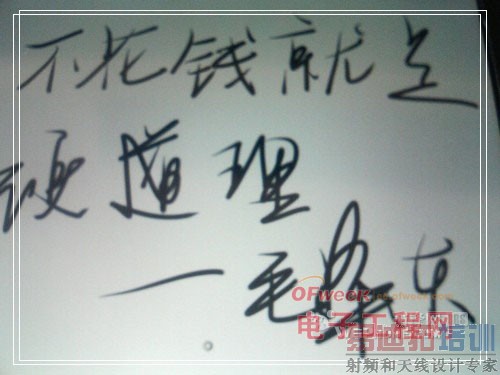 不花钱就是
硬道理
一毛泽东
OFweek
ofweek.com
电子工程网
易迪拓培训
射频和天线设计专家